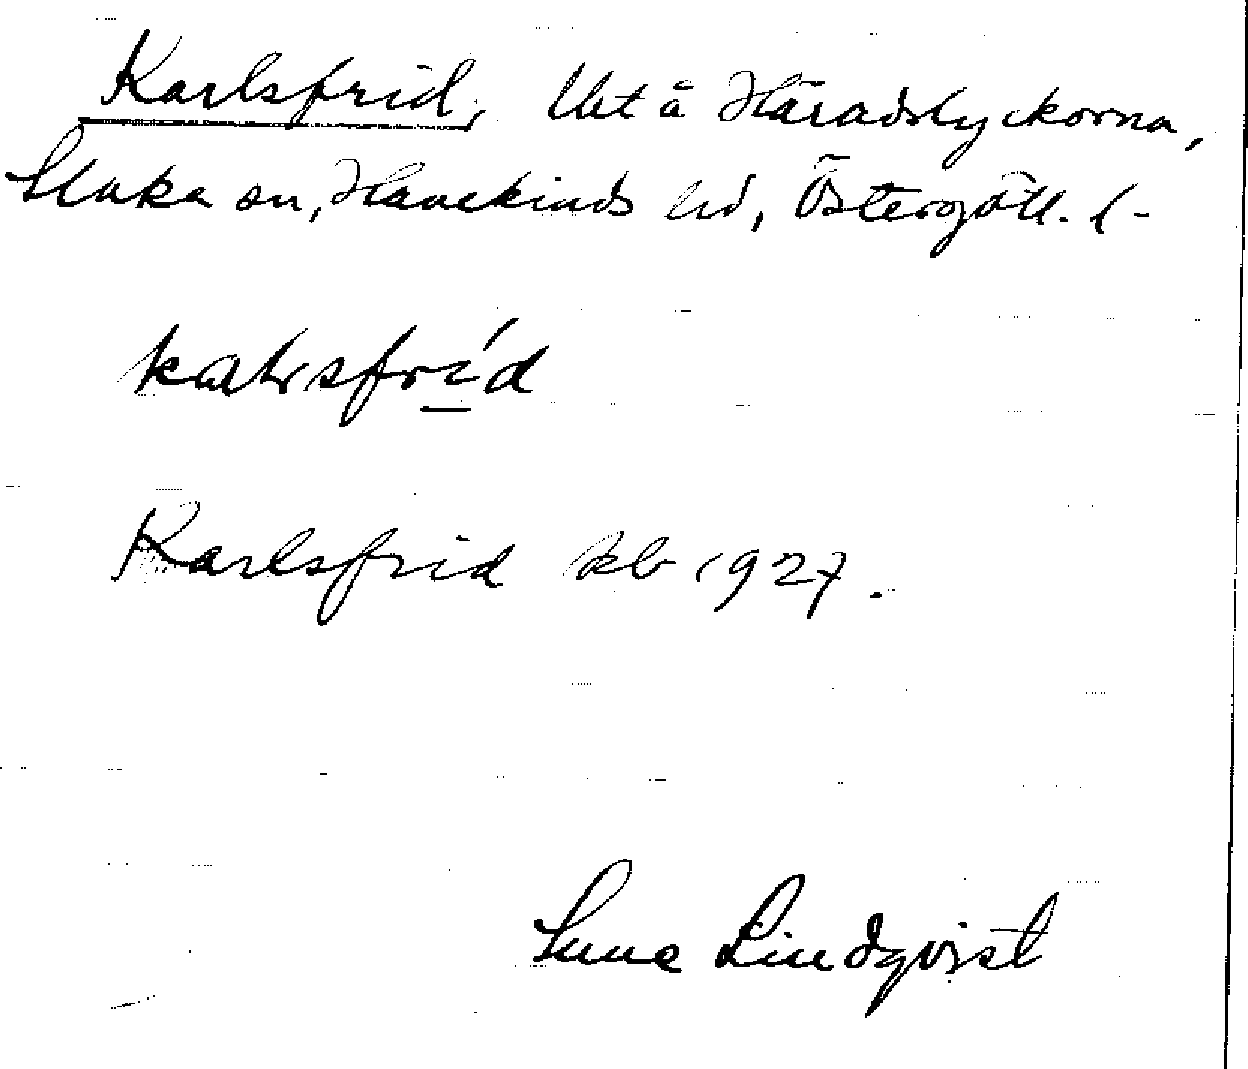 Karlsfrid, Ut å Häradslyckorna,
Slaka sn, Hanekinds hd, Östergötl. l-
kałrsfrí̱d
Karlsfrid kb 1927.
Sune Lindqvist